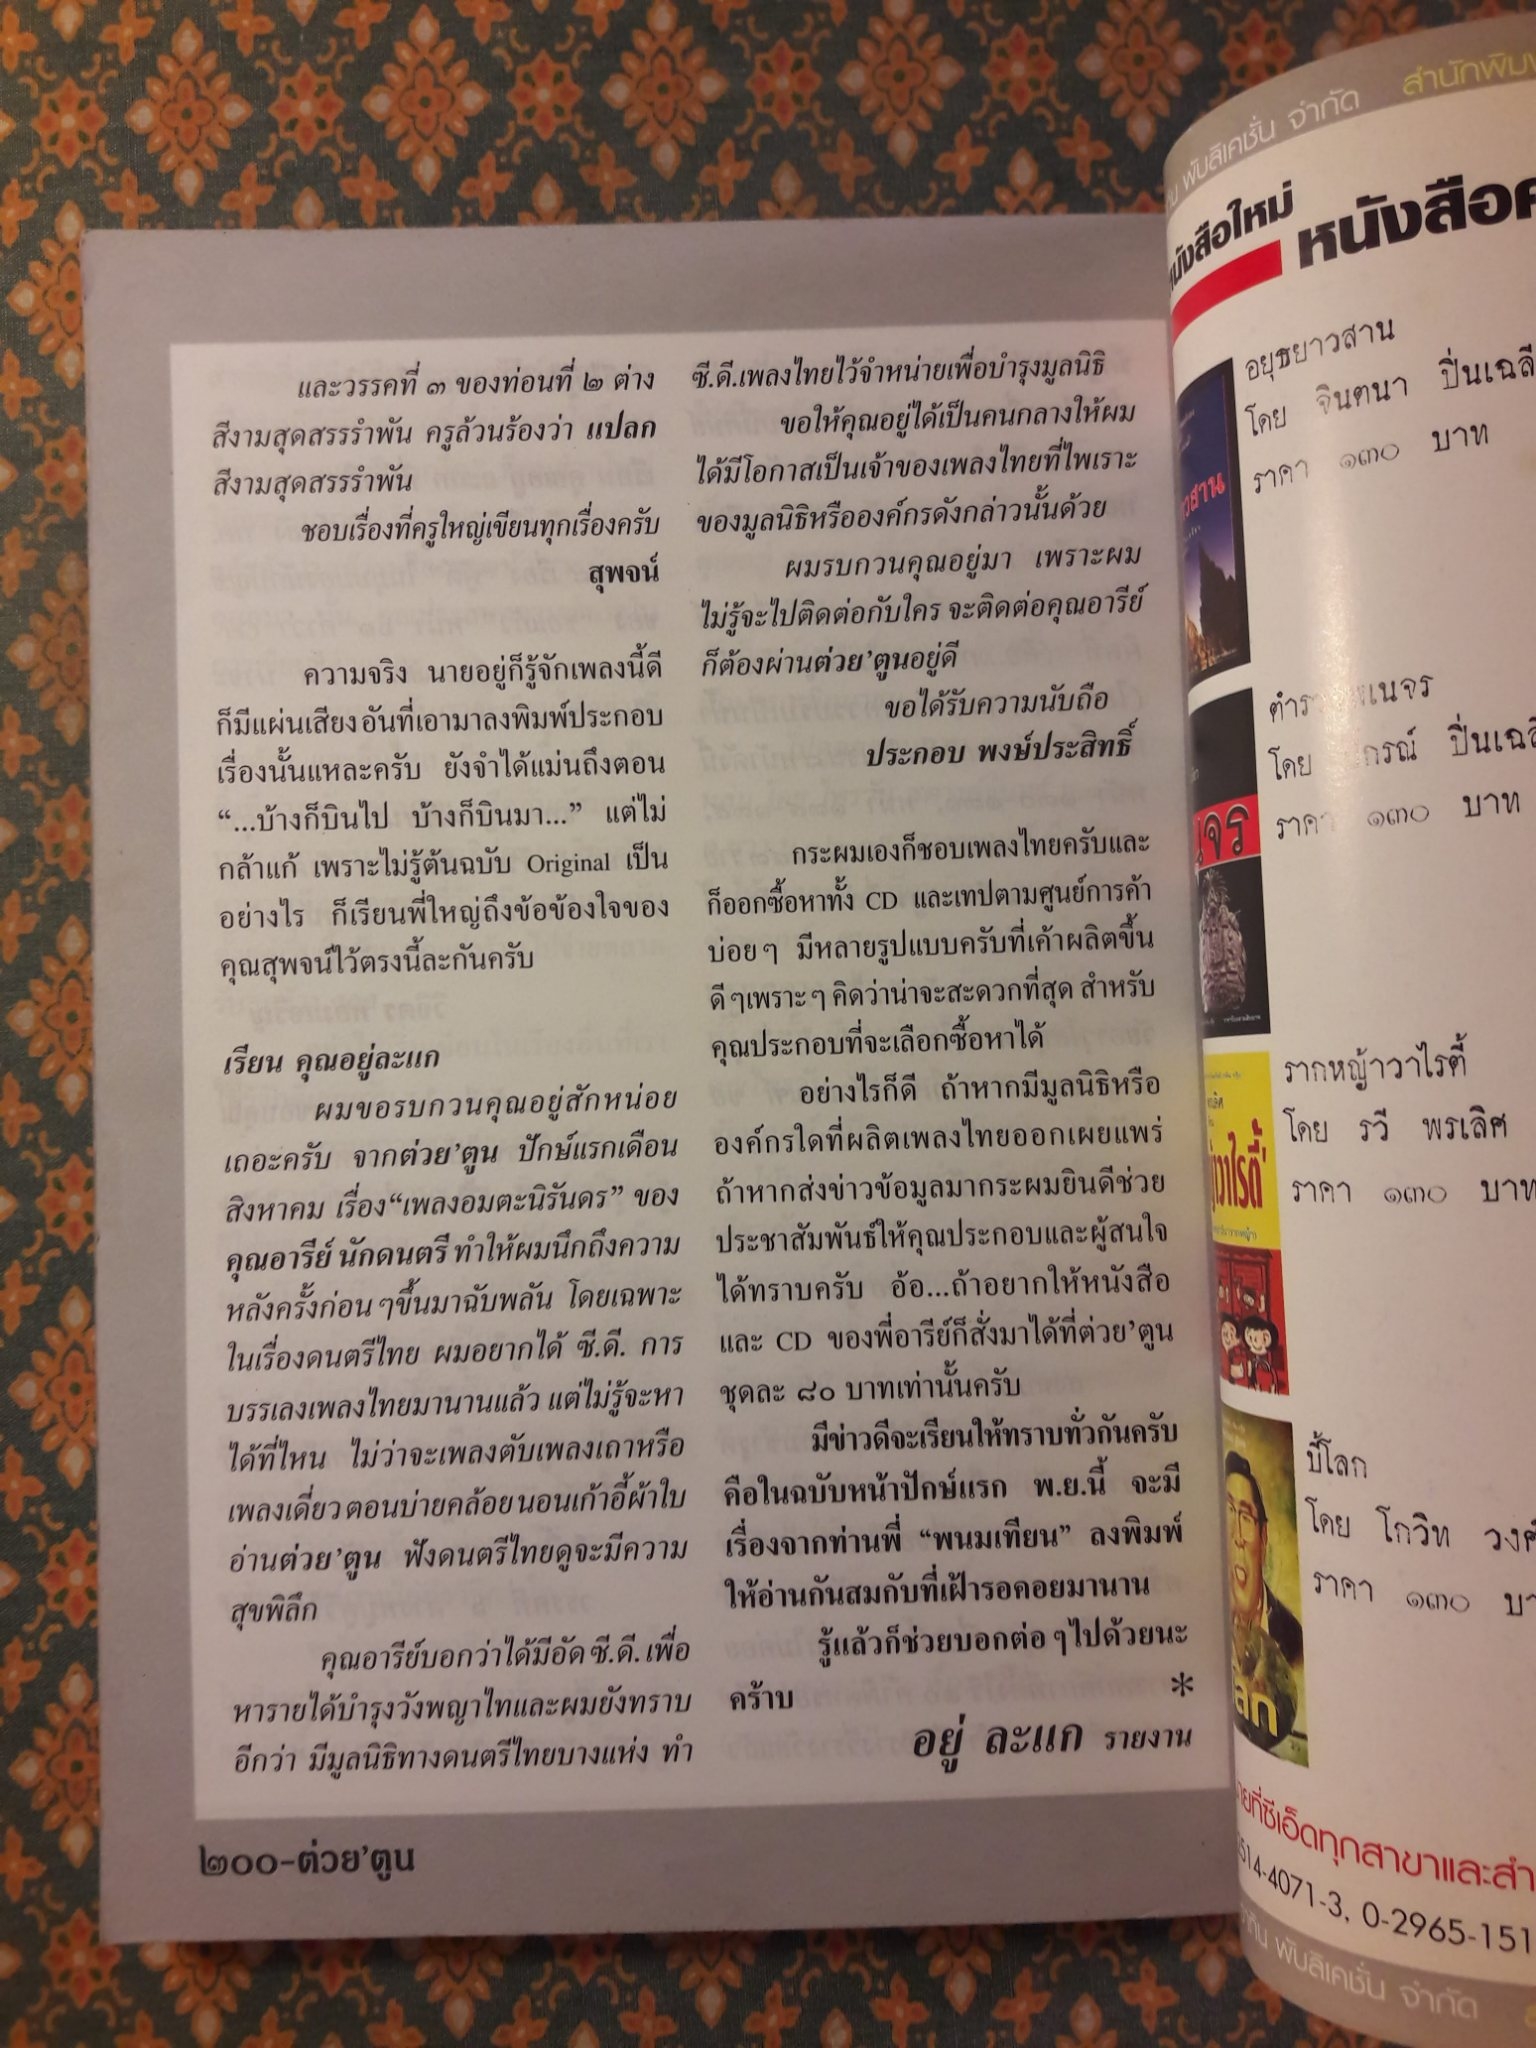 และวรรคที่ ๓ ของท่อนที่ ๒ ต่าง
สีงามสุดสรรรำพัน ครูล้วนร้องว่า แปลก
สีงามสุดสรรรำพัน
ชอบเรื่องที่ครูใหญ่เขียนทุกเรื่องครับ
สุพจน์
ความจริง นายอยู่ก็รู้จักเพลงนี้ดี
ก็มีแผ่นเสียงอันที่เอามาลงพิมพ์ประกอบ
เรื่องนั้นแหละครับ ยังจำได้แม่นถึงตอน
“...บ้างก็บินไป บ้างก็บินมา...” แต่ไม่
กล้าแก้ เพราะไม่รู้ต้นฉบับ Original เป็น
อย่างไร ก็เรียนพี่ใหญ่ถึงข้อข้องใจของ
คุณสุพจน์ไว้ตรงนี้ละกันครับ
เรียน คุณอยู่ละแก
ผมขอรบกวนคุณอยู่สักหน่อย
เถอะครับ จากต่วย’ตูน ปักษ์แรกเดือน
สิงหาคม เรื่อง“เพลงอมตะนิรันดร” ของ
คุณอารีย์ นักดนตรี ทำให้ผมนึกถึงความ
หลังครั้งก่อนๆขึ้นมาฉับพลัน โดยเฉพาะ
ในเรื่องดนตรีไทย ผมอยากได้ ซี.ดี. การ
บรรเลงเพลงไทยมานานแล้ว แต่ไม่รู้จะหา
ได้ที่ไหน ไม่ว่าจะเพลงตับเพลงเถาหรือ
เพลงเดี่ยว ตอนบ่ายคล้อยนอนเก้าอี้ผ้าใบ
อ่านต่วย’ตูน ฟังดนตรีไทยดูจะมีความ
สุขพิลึก
คุณอารีย์บอกว่าได้มีอัด ซี.ดี. เพื่อ
หารายได้บำรุงวังพญาไทและผมยังทราบ
อีกว่า มีมูลนิธิทางดนตรีไทยบางแห่ง ทำ
ซี.ดี.เพลงไทยไว้จำหน่ายเพื่อบำรุงมูลนิธิ
ขอให้คุณอยู่ได้เป็นคนกลางให้ผม
ได้มีโอกาสเป็นเจ้าของเพลงไทยที่ไพเราะ
ของมูลนิธิหรือองค์กรดังกล่าวนั้นด้วย
ผมรบกวนคุณอยู่มา เพราะผม
ไม่รู้จะไปติดต่อกับใคร จะติดต่อคุณอารีย์
ก็ต้องผ่านต่วย’ตูนอยู่ดี
ขอได้รับความนับถือ
ประกอบ พงษ์ประสิทธิ์
กระผมเองก็ชอบเพลงไทยครับและ
ก็ออกซื้อหาทั้ง CD และเทปตามศูนย์การค้า
บ่อยๆ มีหลายรูปแบบครับที่เค้าผลิตขึ้น
ดีๆเพราะๆ คิดว่าน่าจะสะดวกที่สุด สำหรับ
คุณประกอบที่จะเลือกซื้อหาได้
อย่างไรก็ดี ถ้าหากมีมูลนิธิหรือ
องค์กรใดที่ผลิตเพลงไทยออกเผยแพร่
ถ้าหากส่งข่าวข้อมูลมากระผมยินดีช่วย
ประชาสัมพันธ์ให้คุณประกอบและผู้สนใจ
ได้ทราบครับ อ้อ...ถ้าอยากให้หนังสือ
และ CD ของพี่อารีย์ก็สั่งมาได้ที่ต่วย’ตูน
ชุดละ ๘๐ บาทเท่านั้นครับ
มีข่าวดีจะเรียนให้ทราบทั่วกันครับ
คือในฉบับหน้าปักษ์แรก พ.ย.นี้ จะมี
เรื่องจากท่านพี่ “พนมเทียน” ลงพิมพ์
ให้อ่านกันสมกับที่เฝ้ารอคอยมานาน
รู้แล้วก็ช่วยบอกต่อๆไปด้วยนะ
คร้าบ *
อยู่ ละแก รายงาน
๒๐๐-ต่วย’ตูน
พับลิเคชั่น จำกัด
หนังสือใหม่
อยุธยาวสาน
โดย จินตนา
ราคา ๑๓๐ บาท
โดย
ราคา ๑๓๐ บาท
รากหญ้าวาไรตี้
โดย รวี พรเลิศ
ราคา ๑๓๐ บาท
บี้โลก
โดย โกวิท
ราคา ๑๓๐
514-4071-3, 0-2965-151
พับลิเคชั่น จำกัด